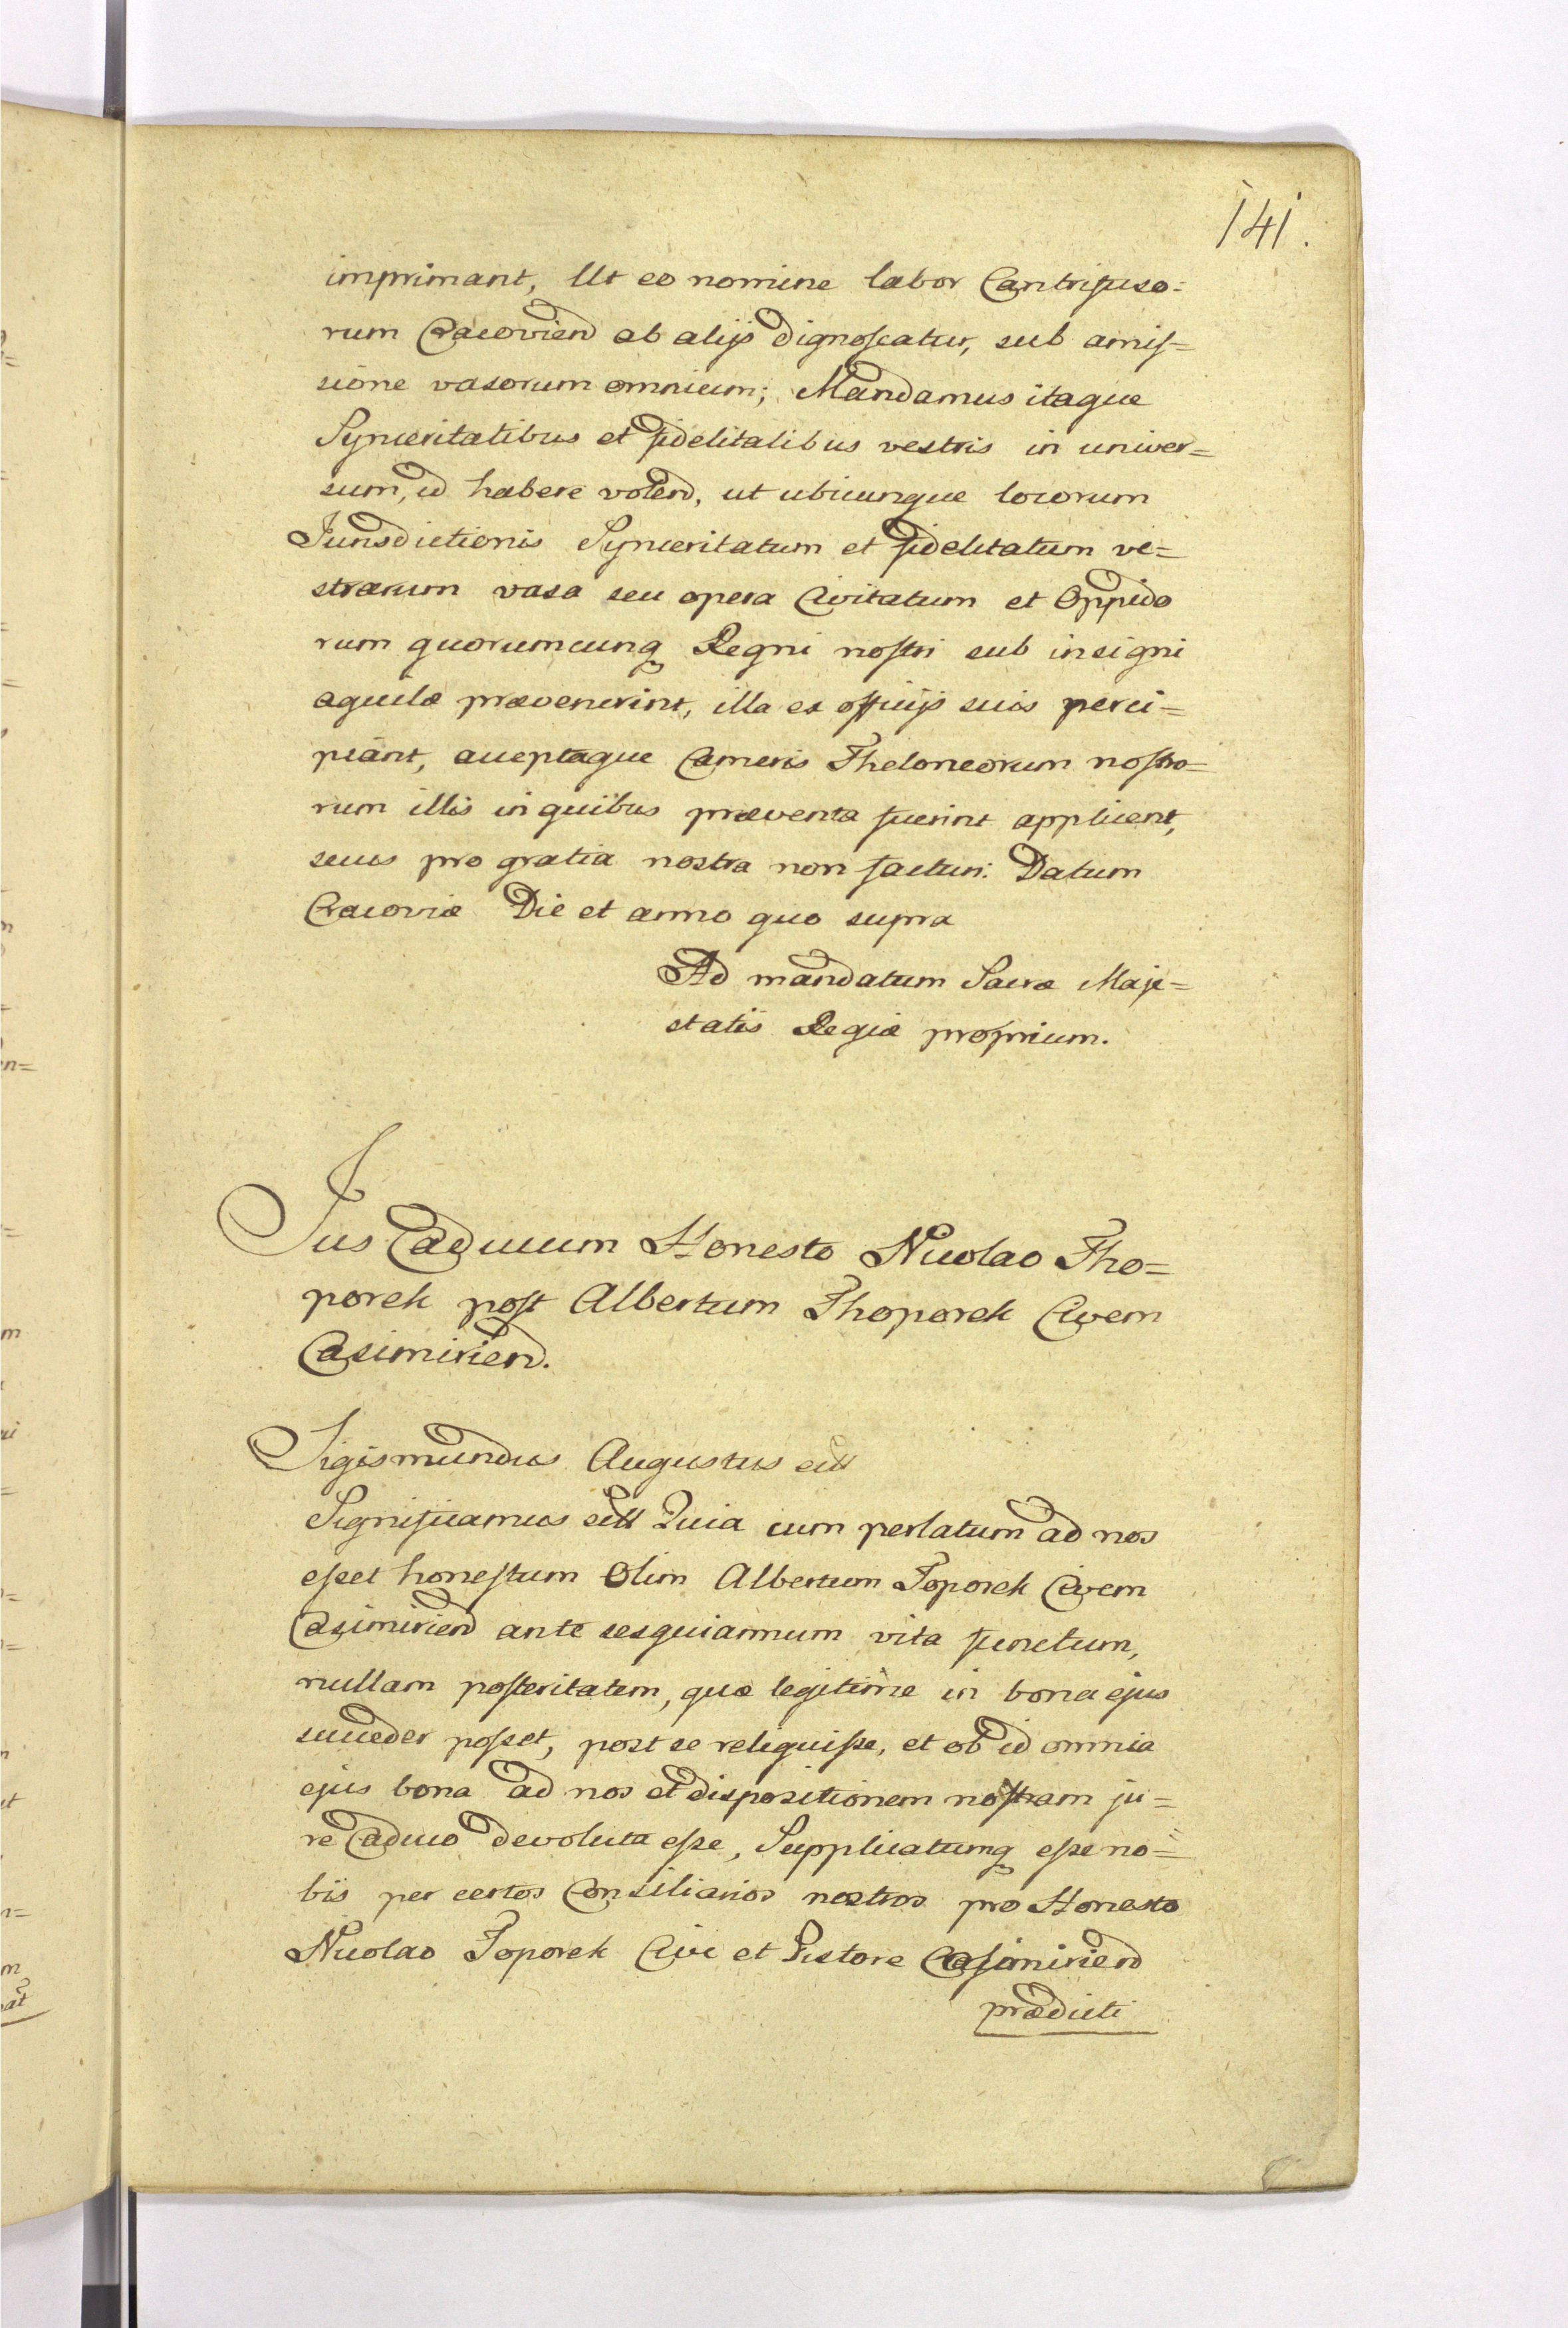 141.
imprimant, Ut eo nomine labor Cantrifuso=
rum Cracovien ab alijs dignoscatur, sub amis=
sione vasorum omnium; Mandamus itaque
Synceritatibus et fidelitatibus vestris in univer=
sum, id habere volen, ut ubicunque locorum
Jurisdictionis Synceritatum et fidelitatum ve=
strarum vasa seu opera Civitatum et Oppido
rum quorumcunq Regni nostri sub insigni
aquilæ prævenerint, illa ex officijs suis perci=
piant, acceptaque Cameris Theloneorum nostro=
rum illis in quibus præventa fuerint applicent,
secus pro gratia nostra non facturi. Datum
Cracoviæ Die et anno quo supra
Ad mandatum Sacræ Maje=
statis Regiæ proprium.
Jus Caducum Honesto Nicolao Tho=
porek post Albertum Thoporek Civem
Casimirien.
Sigismundus Augustus etc
Significamus etc Quia cum perlatum ad nos
esset honestum Olim Albertum Toporek Civem
Casimirien ante sesquiannum vita functum,
nullam posteritatem, quæ legitime in bona ejus
succeder posset, post se reliquisse, et ob id omnia
ejus bona ad nos et dispositionem nostram ju=
re Caduco devoluta esse, Supplicatumq esse no=
bis per certos Consiliarios nostros pro Honesto
Nicolao Toporek Cive et Pistore Casimirien
prædicti